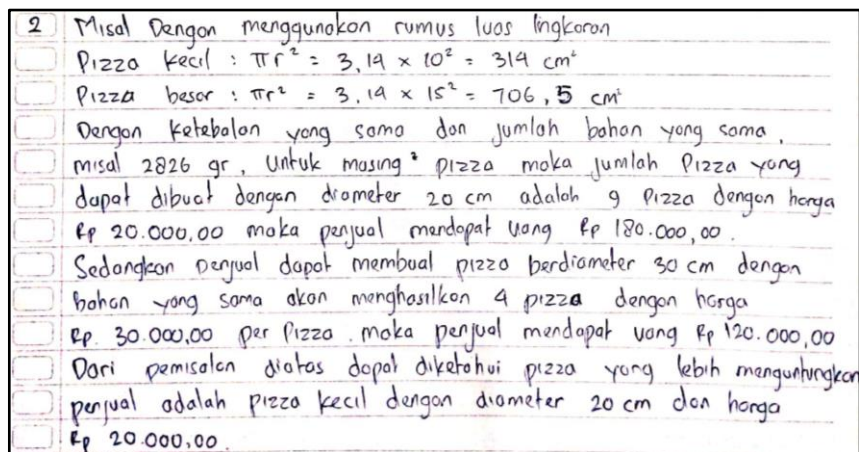 2 Misal Dengan menggunakan rumus luas lingkaran
Pizza kecil : πr² = 3,14 × 10² = 314 cm²
Pizza besar : πr² = 3,14 × 15² = 706,5 cm²
Dengan ketebalan yang sama dan jumlah bahan yang sama,
misal 2826 gr, Untuk masing² pizza maka jumlah Pizza yang
dapat dibuat dengan diameter 20 cm adalah 9 Pizza dengan harga
Rp 20.000,00 maka penjual mendapat uang Rp 180.000,00.
Sedangkan penjual dapat membuat pizza berdiameter 30 cm dengan
bahan yang sama akan menghasilkan 4 pizza dengan harga
Rp. 30.000,00 per Pizza. maka penjual mendapat uang Rp 120.000,00
Dari pemisalan diatas dapat diketahui pizza yang lebih menguntungkan
penjual adalah pizza kecil dengan diameter 20 cm dan harga
Rp 20.000,00.